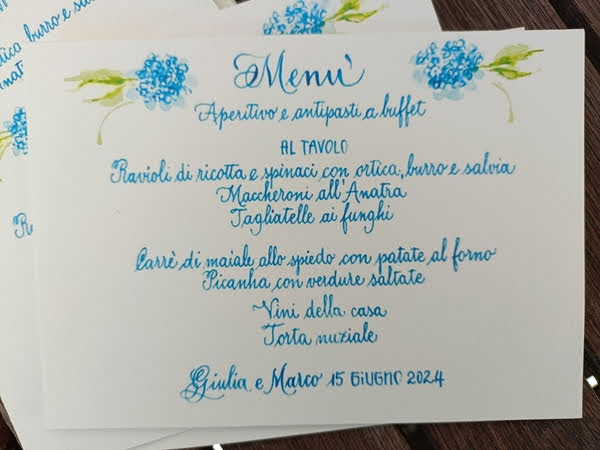 Menù
Aperitivo e antipasti a buffet
AL TAVOLO
Ravioli di ricotta e spinaci con ortica, burro e salvia
Maccheroni all'Anatra
Tagliatelle ai funghi
Carrè di maiale allo spiedo con patate al forno
Picanha con verdure saltate
Vini della casa
Torta nuziale
Giulia e Marco 15 GIUGNO 2024
ortica, burro e sal